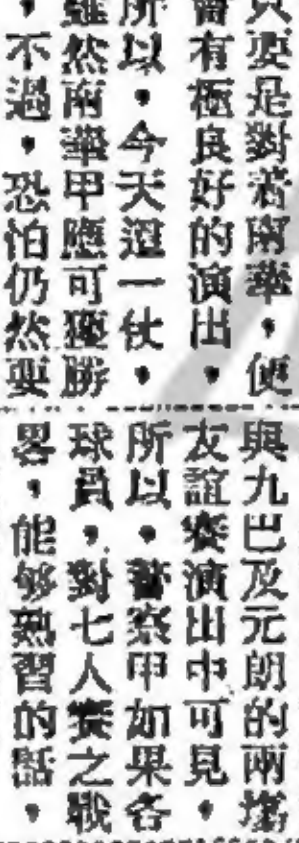 只要是對着南華，便
會有極良好的演出，
所以，今天這一仗，
雖然南華甲應可獲勝
，不過，恐怕仍然要
與九巴及元朗的兩塲
友誼賽演出中可見，
所以，警察甲如果各
球員，對七人賽之戰
畧，能够熟習的話，